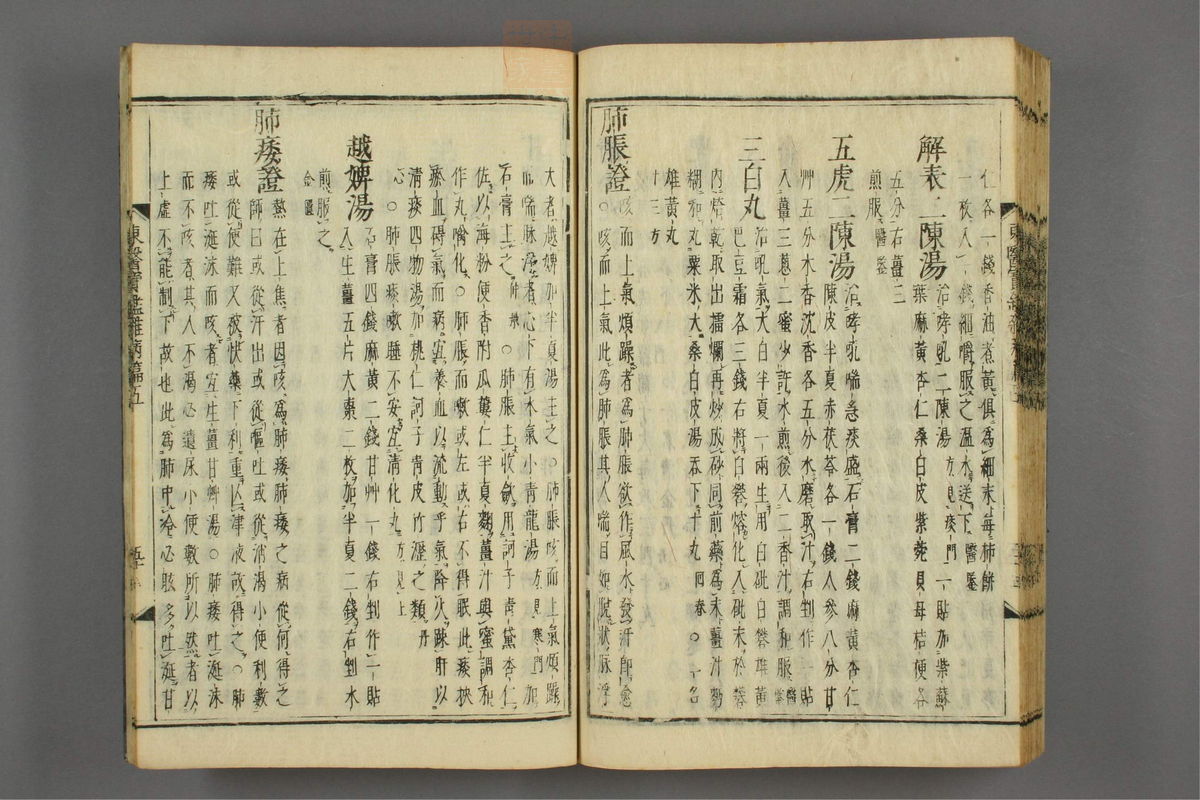 仁各一錢香油煮黃俱爲細末每柿餅
一枚入一錢細嚼服之溫水送下醫鑒
解表二陳湯治哮吼二陳湯方見痰門一貼加紫蘇
葉麻黃杏仁桑白皮紫菀貝母桔便各
五分右薑三
煎服醫鑒
五虎二陳湯治哮吼喘急痰盛石膏二錢麻黃杏仁
陳皮半夏赤茯苓各一錢人參八分甘
艸五分木香沈香各五分水磨取汁右剉作一貼
入薑三葱二蜜少許水煎後入二香汁調和服醫鑒
三白丸治吼氣大白半夏一兩生用白砒白礬雄黃
巴豆霜各三錢右將白礬熔化入砒末於礬
內焙乾取出擂爛再炒成砂同前藥爲末薑汁麪
糊和丸粟米大桑白皮湯吞下十丸回春○一名
雄黃丸
十三方
肺脹證咳而上氣煩躁者爲肺脹欲作風水發汗卽愈
○咳而上氣此爲肺脹其人喘目如脫狀脈浮
大者越婢加半夏湯主之○肺脹咳而上氣煩躁
而喘脈浮者心下有水氣小青龍湯方見寒門加
石膏主之仲景○肺脹主收斂用訶子青黛杏仁
佐以海粉便香附瓜蔞仁半夏麴薑汁與蜜調和
作丸噙化○肺脹而嗽或左或右不得眠此痰挾
瘀血碍氣而病宜養血以流動乎氣降火疎肝以
清痰四物湯加桃仁訶子青皮竹瀝之類丹
心○肺脹痰嗽睡不安宜淸化丸方見上
越婢湯石膏四錢麻黃二錢甘艸一錢右剉作一貼
入生薑五片大棗二枚加半夏二錢右剉水
煎服之
金匱
肺痿證熱在上焦者因咳爲肺痿肺痿之病從何得之
師曰或從汗出或從嘔吐或從消渴小便利數
或從便難又被快藥下利重亡津液故得之○肺
痿吐涎沫而咳者宜生薑甘艸湯○肺痿吐涎沫
而不咳者其人不渴必遺尿小便數所以然者以
上虛不能制下故也此爲肺中冷必眩多吐涎甘
東醫寶鑑雜病篇五